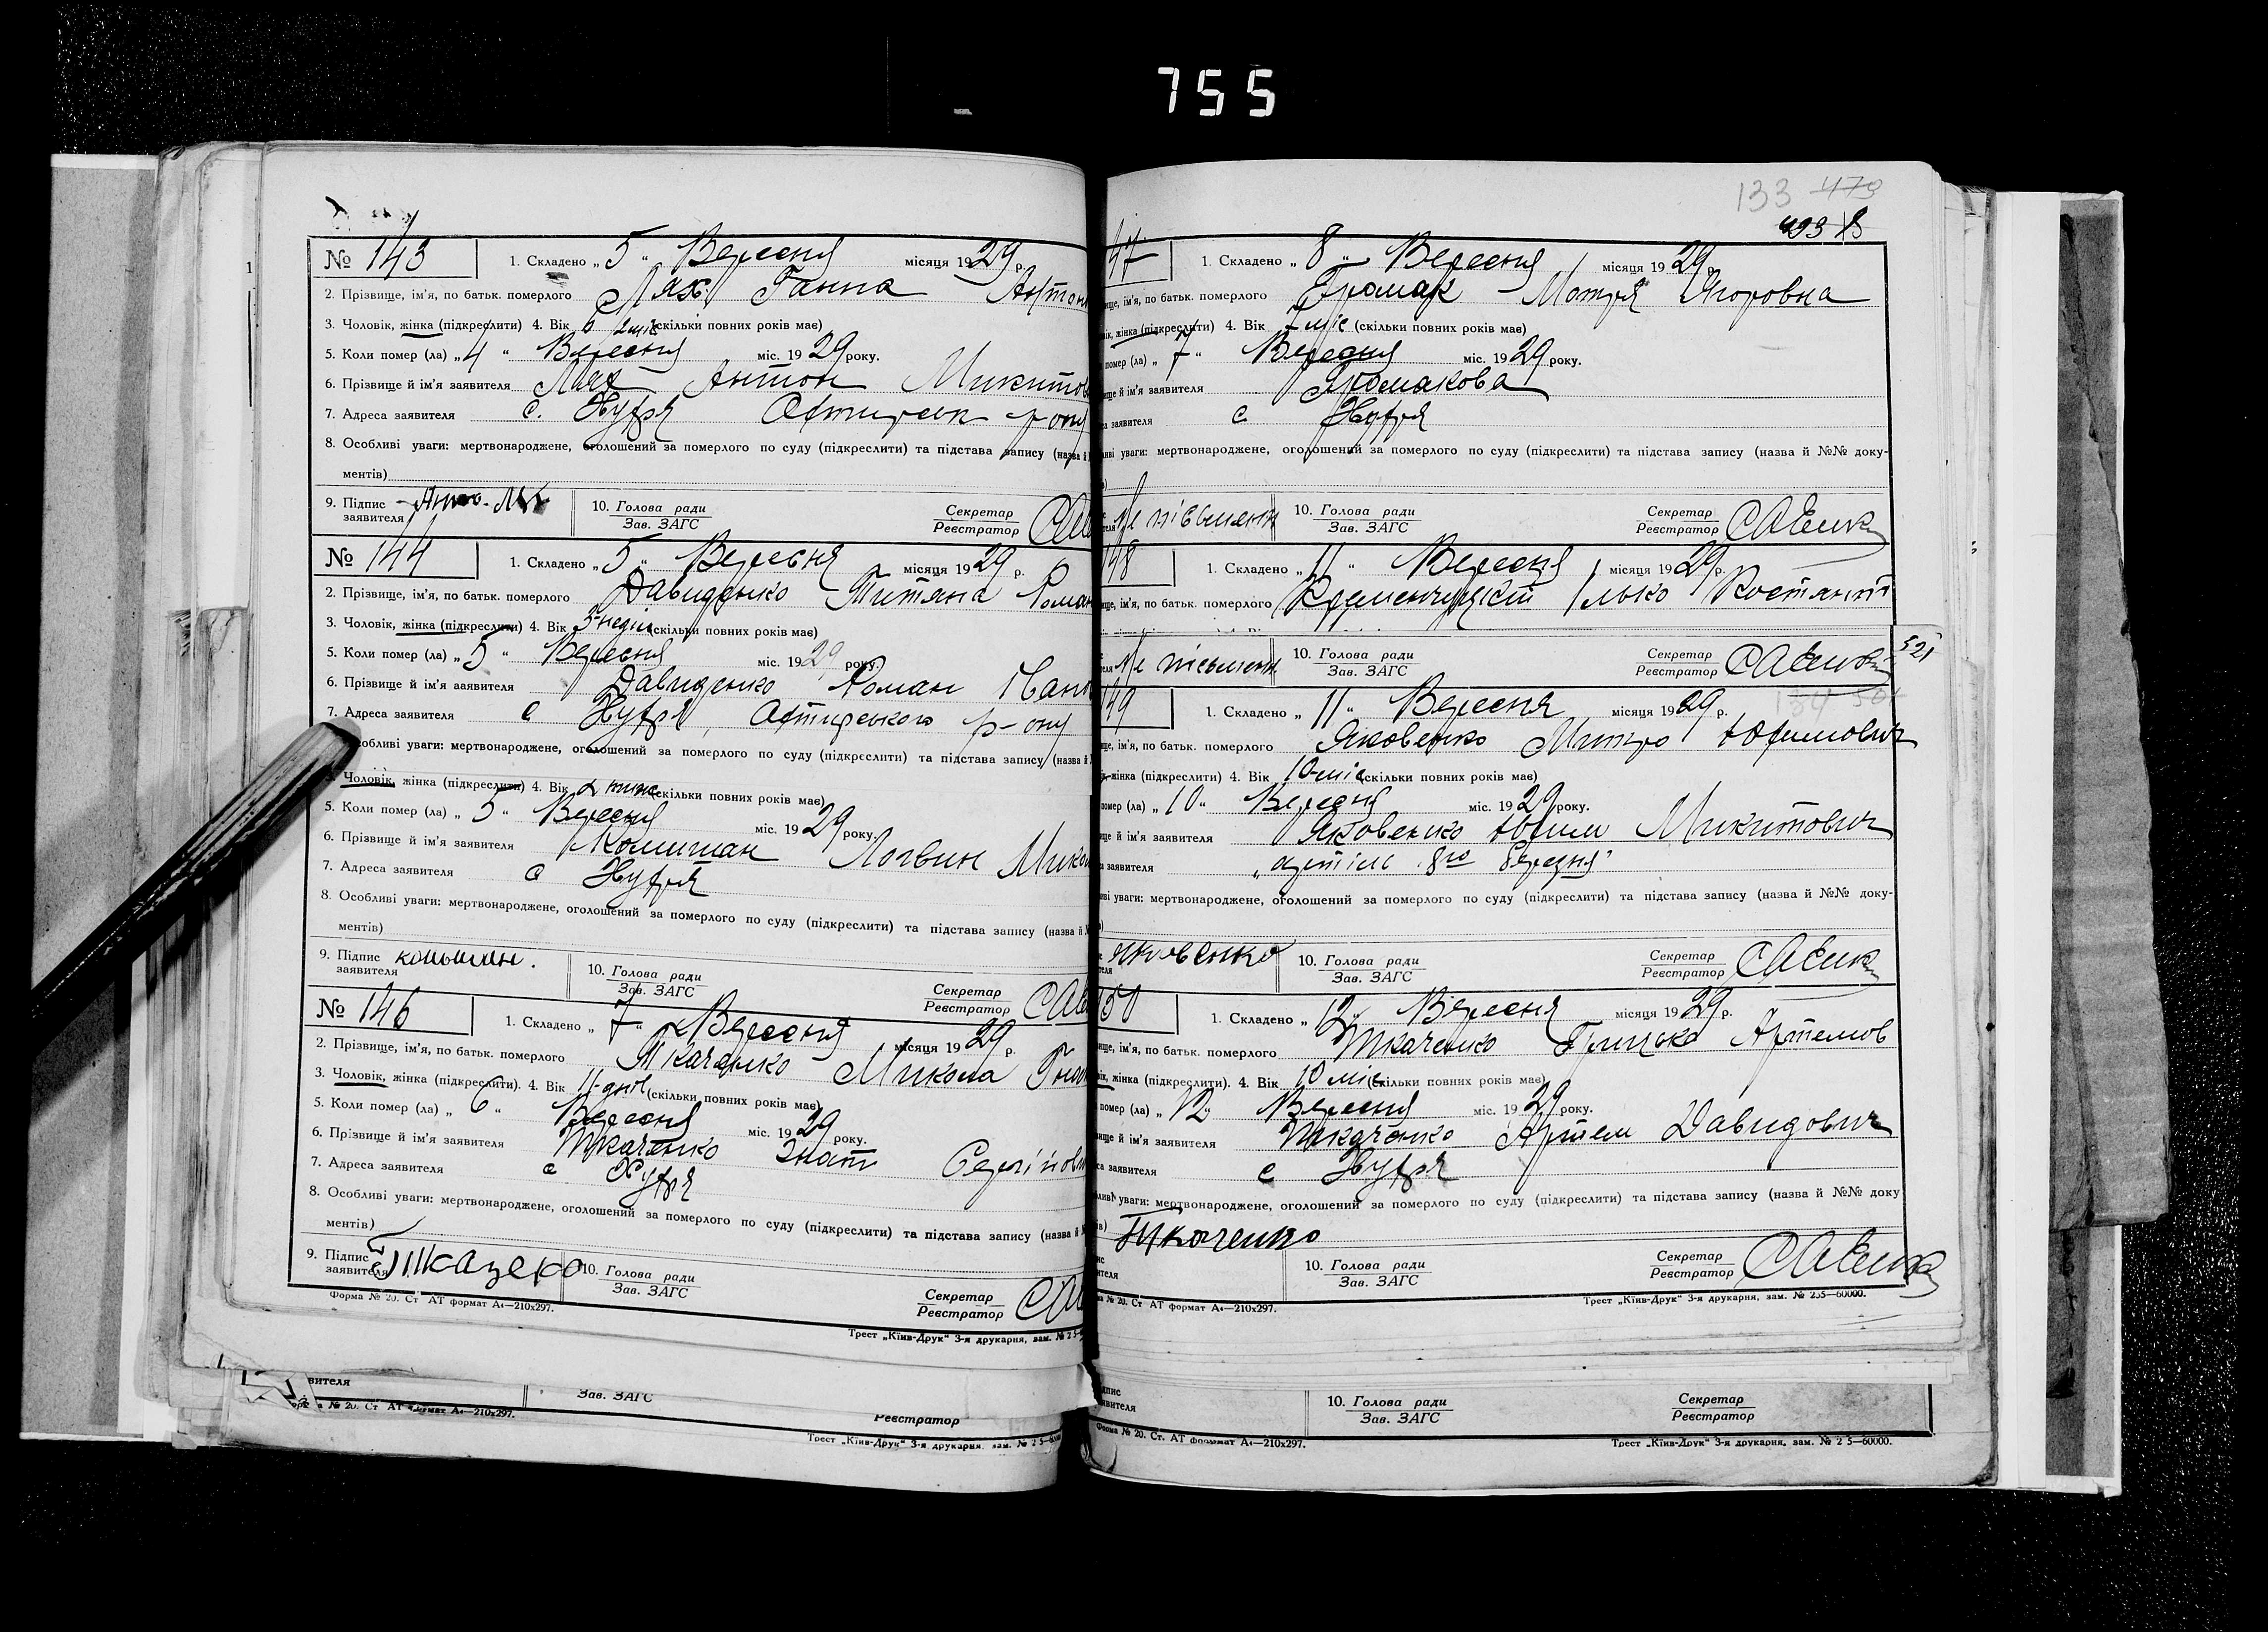 755
№ 143
1. Складено „ 5 " Вересня місяця 1929 р.
2. Прізвище, ім'я, по батьк. померлого Лях Ганна Антон
3. Чоловік, жінка (підкреслити) 4. Вік 2 міс (скільки повних років має)
5. Коли помер (ла) „ 4 " Вересня міс. 1929 року.
6. Прізвище й ім'я заявителя Лях Антон Микитов
7. Адреса заявителя с. Хутря р-ону
8. Особливі уваги: мертвонароджене, оголошений за померлого по суду (підкреслити) та підстава запису (назва й
ментів)
9. Підпис заявителя
10. Голова ради
Зав. ЗАГС
Секретар
Реєстратор
№ 144
1. Складено „ 5 " Вересня місяця 1929 р.
2. Прізвище, ім'я, по батьк. померлого Давиденко Титяна Роман
3. Чоловік, жінка (підкреслити) 4. Вік 5 неділ (скільки повних років має)
5. Коли помер (ла) „ 5 " Вересня міс. 1929 року.
6. Прізвище й ім'я заявителя Давиденко Роман
7. Адреса заявителя с Хутря, р-ону
Особливі уваги: мертвонароджене, оголошений за померлого по суду (підкреслити) та підстава запису (назва й
Чоловік, жінка (підкреслити) 4. Вік 2 тижн (скільки повних років має)
5. Коли помер (ла) „ 5 " Вересня міс. 1929 року.
6. Прізвище й ім'я заявителя Логвин Мико
7. Адреса заявителя с Хутря
8. Особливі уваги: мертвонароджене, оголошений за померлого по суду (підкреслити) та підстава запису (назва й
ментів)
9. Підпис заявителя
10. Голова ради
Зав. ЗАГС
Секретар
Реєстратор
№ 146
1. Складено „ 7 " Вересня місяця 1929 р.
2. Прізвище, ім'я, по батьк. померлого Ткаченко Микола Гнат
3. Чоловік, жінка (підкреслити). 4. Вік 11-днів (скільки повних років має)
5. Коли помер (ла) „ 6 " Вересня міс. 1929 року.
6. Прізвище й ім'я заявителя Ткаченко Гнат Сергійови
7. Адреса заявителя с Хутря
8. Особливі уваги: мертвонароджене, оголошений за померлого по суду (підкреслити) та підстава запису (назва й
ментів)
9. Підпис заявителя
10. Голова ради
Зав. ЗАГС
Секретар
Реєстратор
Форма № 20. Ст АТ формат А4—210х297.
Трест „Київ-Друк" 3-я друкарня, зам. № 2 5
вителя
Зав. ЗАГС
Реєстратор
№ 20. Ст АТ формат А4—210х297.
Трест „Київ-Друк" 3-я друкарня, зам. № 2 5
133 479
493
47
1. Складено „ 8 " Вересня місяця 1929 р.
ище, ім'я, по батьк. померлого Громак Мотря Ягоровна
жінка (підкреслити) 4. Вік 7 міс (скільки повних років має)
помер (ла) „ 7 " Вересня міс. 1929 року.
ще й ім'я заявителя Громакова
са заявителя с Хутря
уваги: мертвонароджене, оголошений за померлого по суду (підкреслити) та підстава запису (назва й №№ доку-
Не письменн
10. Голова ради
Зав. ЗАГС
Секретар
Реєстратор
148
1. Складено „ 11 " Вересня місяця 1929 р.
ище, ім'я, по батьк. померлого Ілько Костянт
Не письменн
10. Голова ради
Зав. ЗАГС
Секретар
Реєстратор
521
149
1. Складено „ 11 " Вересня місяця 1929 р.
ще, ім'я, по батьк. померлого Яковенко Митро Юхимович
жінка (підкреслити) 4. Вік 10-міс (скільки повних років має)
помер (ла) „ 10 " Вересня міс. 1929 року.
ще й ім'я заявителя Яковенко Микитович
заявителя „артіль 8го березня"
уваги: мертвонароджене, оголошений за померлого по суду (підкреслити) та підстава запису (назва й №№ доку-
Яковенко
10. Голова ради
Зав. ЗАГС
Секретар
Реєстратор
150
1. Складено „ 12 " Вересня місяця 1929 р.
ище, ім'я, по батьк. померлого Ткаченко Грицько Артемов
жінка (підкреслити). 4. Вік 10 міс (скільки повних років має)
помер (ла) „ 12 " Вересня міс. 1929 року.
ище й ім'я заявителя Ткаченко Артем Давидович
са заявителя с Хутря
уваги: мертвонароджене, оголошений за померлого по суду (підкреслити) та підстава запису (назва й №№ доку
Ткаченко
10. Голова ради
Зав. ЗАГС
Секретар
Реєстратор
№ 20. Ст АТ формат А4—210х297.
Трест „Київ-Друк" 3-я друкарня, зам. № 235—60000.
10. Голова ради
Зав. ЗАГС
Секретар
Реєстратор
Форма № 20. Ст. АТ формат А4—210х297.
Трест „Київ-Друк" 3-я друкарня, зам. № 2 5—60000.